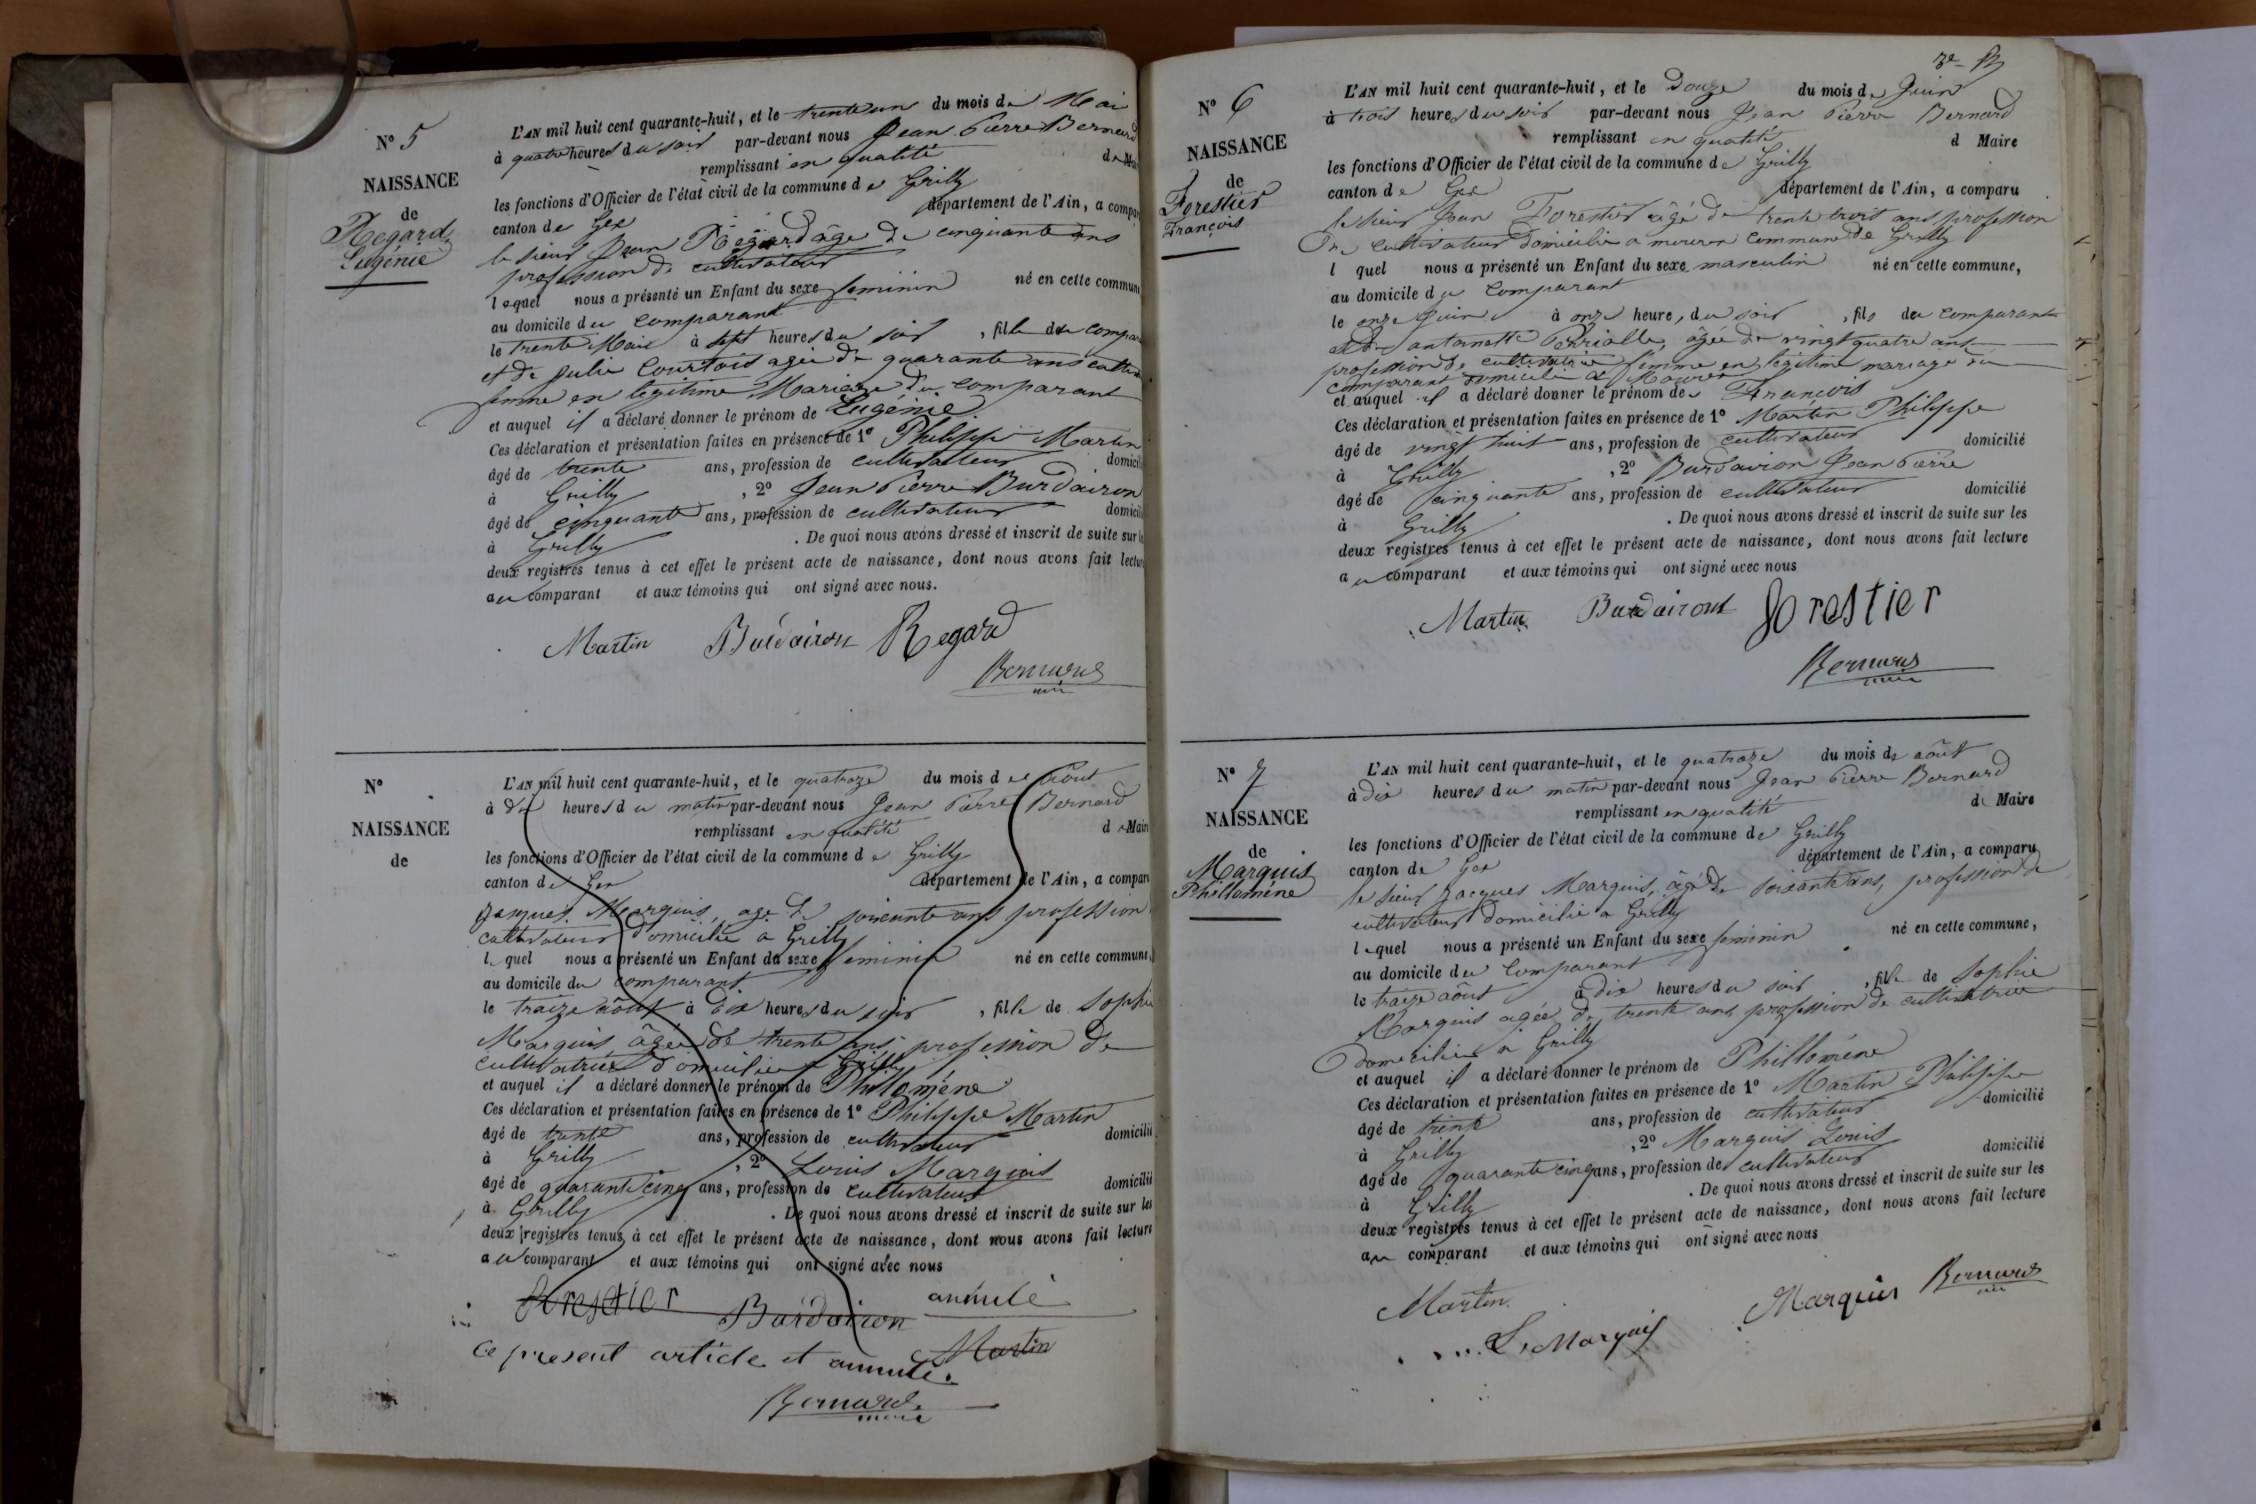 N° 5
NAISSANCE
de
Regard
Eugénie
L'AN mil huit cent quarante-huit, et le trente un du mois de Mai
à quatre heures du soir par-devant nous Jean Pierre Bernard
remplissant en qualité de Mai
les fonctions d'Officier de l'état civil de la commune de Grilly
canton de Gex département de l'Ain, a compar
le sieur Jean Regard âgé de cinquante ans
profession de cultivateur
lequel nous a présenté un Enfant du sexe feminin né en cette commune
au domicile du comparant
le trente Mai à sept heures du soir, fille du compar
et de Julie Courtois agée de quarante ans cultiv
femme en légitime Mariage du comparant
et auquel il a déclaré donner le prénom de Eugénie
Ces déclaration et présentation faites en présence de 1° Philippe Martin
âgé de trente ans, profession de cultivateur domicili
à Grilly, 2° Jean Pierre Burdairon
âgé de cinquante ans, profession de cultivateur domicili
à Grilly. De quoi nous avons dressé et inscrit de suite sur l
deux registres tenus à cet effet le présent acte de naissance, dont nous avons fait lectur
au comparant et aux témoins qui ont signé avec nous.
Martin Burdairon Regard
Bernard
maire
N°
NAISSANCE
de
L'AN mil huit cent quarante-huit, et le quatorze du mois de Août
à dix heures du matin par-devant nous Jean Pierre Bernard
remplissant en qualité de Mair
les fonctions d'Officier de l'état civil de la commune de Grilly
canton de Gex département de l'Ain, a compar
Jaques Marquis, age de soixante ans profession
cultivateur domicilié a Grilly
lequel nous a présenté un Enfant du sexe feminin né en cette commune,
au domicile du comparant
le traize août à dix heures du soir, fille de Sophie
Marquis âgée de trente ans profession de
cultivatrice domiciliée a Grilly
et auquel il a déclaré donner le prénom de Philomène
Ces déclaration et présentation faites en présence de 1° Philippe Martin
âgé de trente ans, profession de cultivateur domicilié
à Grilly, 2° Louis Marquis
âgé de quarante cinq ans, profession de cultivateur domicilié
à Grilly. De quoi nous avons dressé et inscrit de suite sur les
deux registres tenus à cet effet le présent acte de naissance, dont nous avons fait lecture
au comparant et aux témoins qui ont signé avec nous
Forestier Burdairon annulé
Martin
ce present article et annulé.
Bernard
maire
N° 6
NAISSANCE
de
Forestier
François
L'AN mil huit cent quarante-huit, et le Douze du mois de Juin
à trois heures du soir par-devant nous Jean Pierre Bernard
remplissant en qualité d Maire
les fonctions d'Officier de l'état civil de la commune de Grilly
canton de Gex département de l'Ain, a comparu
le sieur Jean Forestier âgé de trente troit ans profession
De cultivateur domicilié a mourex commune de Grilly
lquel nous a présenté un Enfant du sexe masculin né en cette commune,
au domicile du comparant
le onze Juin à onze heure, du soir, fils du comparant
et de antoinette âgée de vingt quatre ans
profession de cultivatrice femme en légitime mariage du
comparant domicilié a Mourex
et auquel il a déclaré donner le prénom de François
Ces déclaration et présentation faites en présence de 1° Martin Philippe
âgé de vingt huit ans, profession de cultivateur domicilié
à Grilly, 2° Burdairon Jean Pierre
âgé de cinquante ans, profession de cultivateur domicilié
à Grilly. De quoi nous avons dressé et inscrit de suite sur les
deux registres tenus à cet effet le présent acte de naissance, dont nous avons fait lecture
au comparant et aux témoins qui ont signé avec nous
Martin Burdairont Forestier
Bernard
maire
N° 7
NAISSANCE
de
Marquis
Phillomène
L'AN mil huit cent quarante-huit, et le quatorze du mois de août
à dix heures du matin par-devant nous Jean Pierre Bernard
remplissant en qualité de Maire
les fonctions d'Officier de l'état civil de la commune de Grilly
canton de Gex département de l'Ain, a comparu
le sieur Jacques Marquis, âgé de soixante ans, profession de
cultivateur domicilié a Grilly
lequel nous a présenté un Enfant du sexe feminin né en cette commune,
au domicile du comparant
le traize août à dix heures du soir, fille de Sophie
Marquis agée de trente ans profession de cultivatrice
domiciliée a Grilly
et auquel il a déclaré donner le prénom de Phillomène
Ces déclaration et présentation faites en présence de 1° Martin Philippe
âgé de trente ans, profession de cultivateur domicilié
à Grilly, 2° Marquis Louis
âgé de quarante cinq ans, profession de cultivateur domicilié
à Grilly. De quoi nous avons dressé et inscrit de suite sur les
deux registres tenus à cet effet le présent acte de naissance, dont nous avons fait lecture
au comparant et aux témoins qui ont signé avec nous
Martin Marquis Bernard
L. Marquis